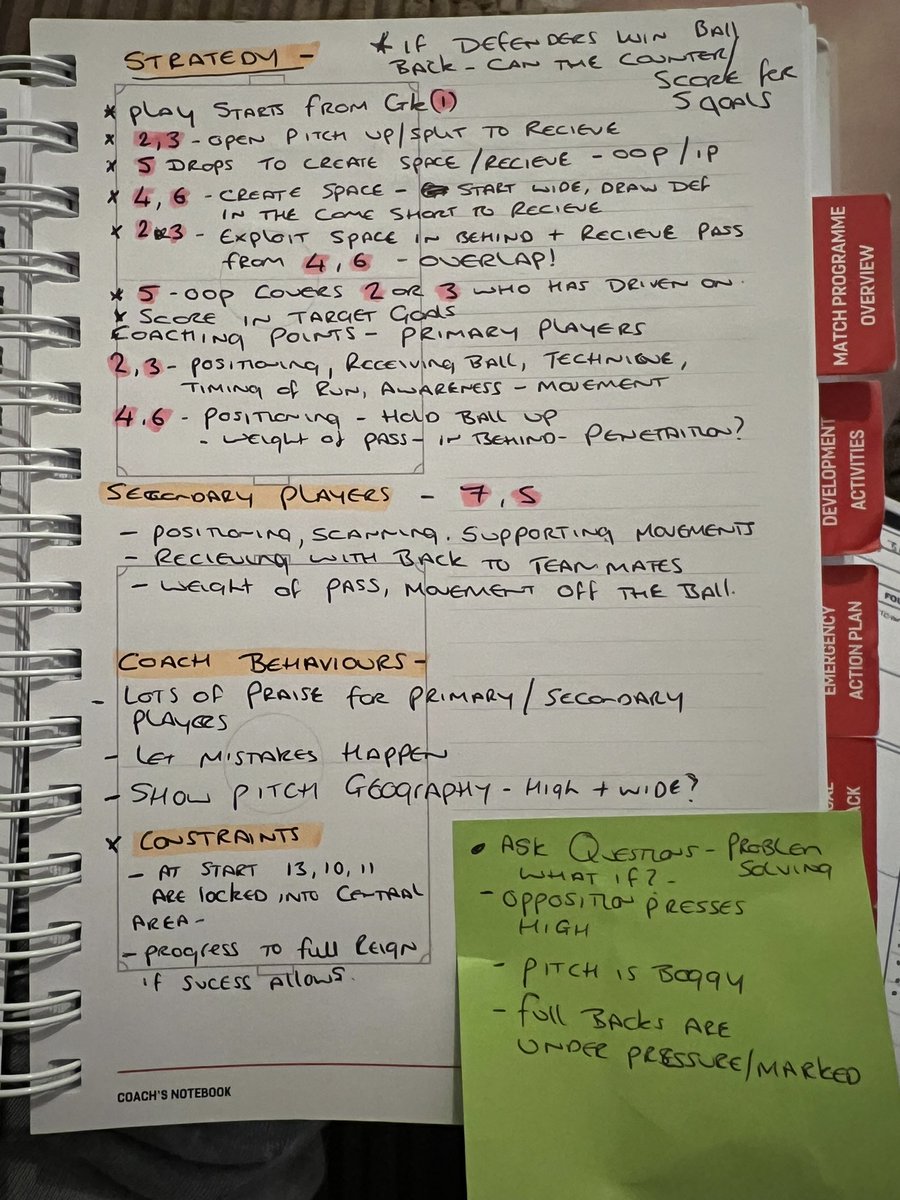 STRATEDY -
* IF DEFENDERS WIN BALL
BACK - CAN THE COUNTER/
SCORE FOR
5 GOALS
* PLAY STARTS FROM GK (1)
* 2,3 - OPEN PITCH UP/SPLIT TO RECIEVE
* 5 DROPS TO CREATE SPACE/RECIEVE - OOP/IP
* 4, 6 - CREATE SPACE - START WIDE, DRAW DEF
IN THE COME SHORT TO RECIEVE
* 2 3 - EXPLOIT SPACE IN BEHIND + RECIEVE PASS
FROM 4, 6 - OVERLAP!
* 5 - OOP COVERS 2 OR 3 WHO HAS DRIVEN ON.
* SCORE IN TARGET GOALS
COACHING POINTS - PRIMARY PLAYERS
2,3 - POSITIONING, RECEIVING BALL, TECHNIQUE,
TIMING OF RUN, AWARENESS - MOVEMENT
4,6 - POSITIONING - HOLD BALL UP
- WEIGHT OF PASS - IN BEHIND - PENETAITION?
SECONDARY PLAYERS - 7, 5
- POSITIONING, SCANNING. SUPPORTING MOVEMENTS
- RECIEVING WITH BACK TO TEAM MATES
- WEIGHT OF PASS, MOVEMENT OFF THE BALL.
COACH BEHAVIOURS -
- LOTS OF PRAISE FOR PRIMARY / SECONDARY
PLAYERS
- LET MISTAKES HAPPEN
- SHOW PITCH GEOGRAPHY - HIGH + WIDE?
* CONSTRAINTS
- AT START 13, 10, 11
ARE LOCKED INTO CENTRAL
AREA -
- PROGRESS TO FULL REIGN
IF SUCESS ALLOWS.
• ASK QUESTIONS - PROBLEM
SOLVING
WHAT IF? -
- OPPOSITION PRESSES
HIGH
- PITCH IS BOGGY
- FULL BACKS ARE
UNDER PRESSURE/MARKED
COACH'S NOTEBOOK
MATCH PROGRAMME
OVERVIEW
DEVELOPMENT
ACTIVITIES
EMERGENCY
ACTION PLAN